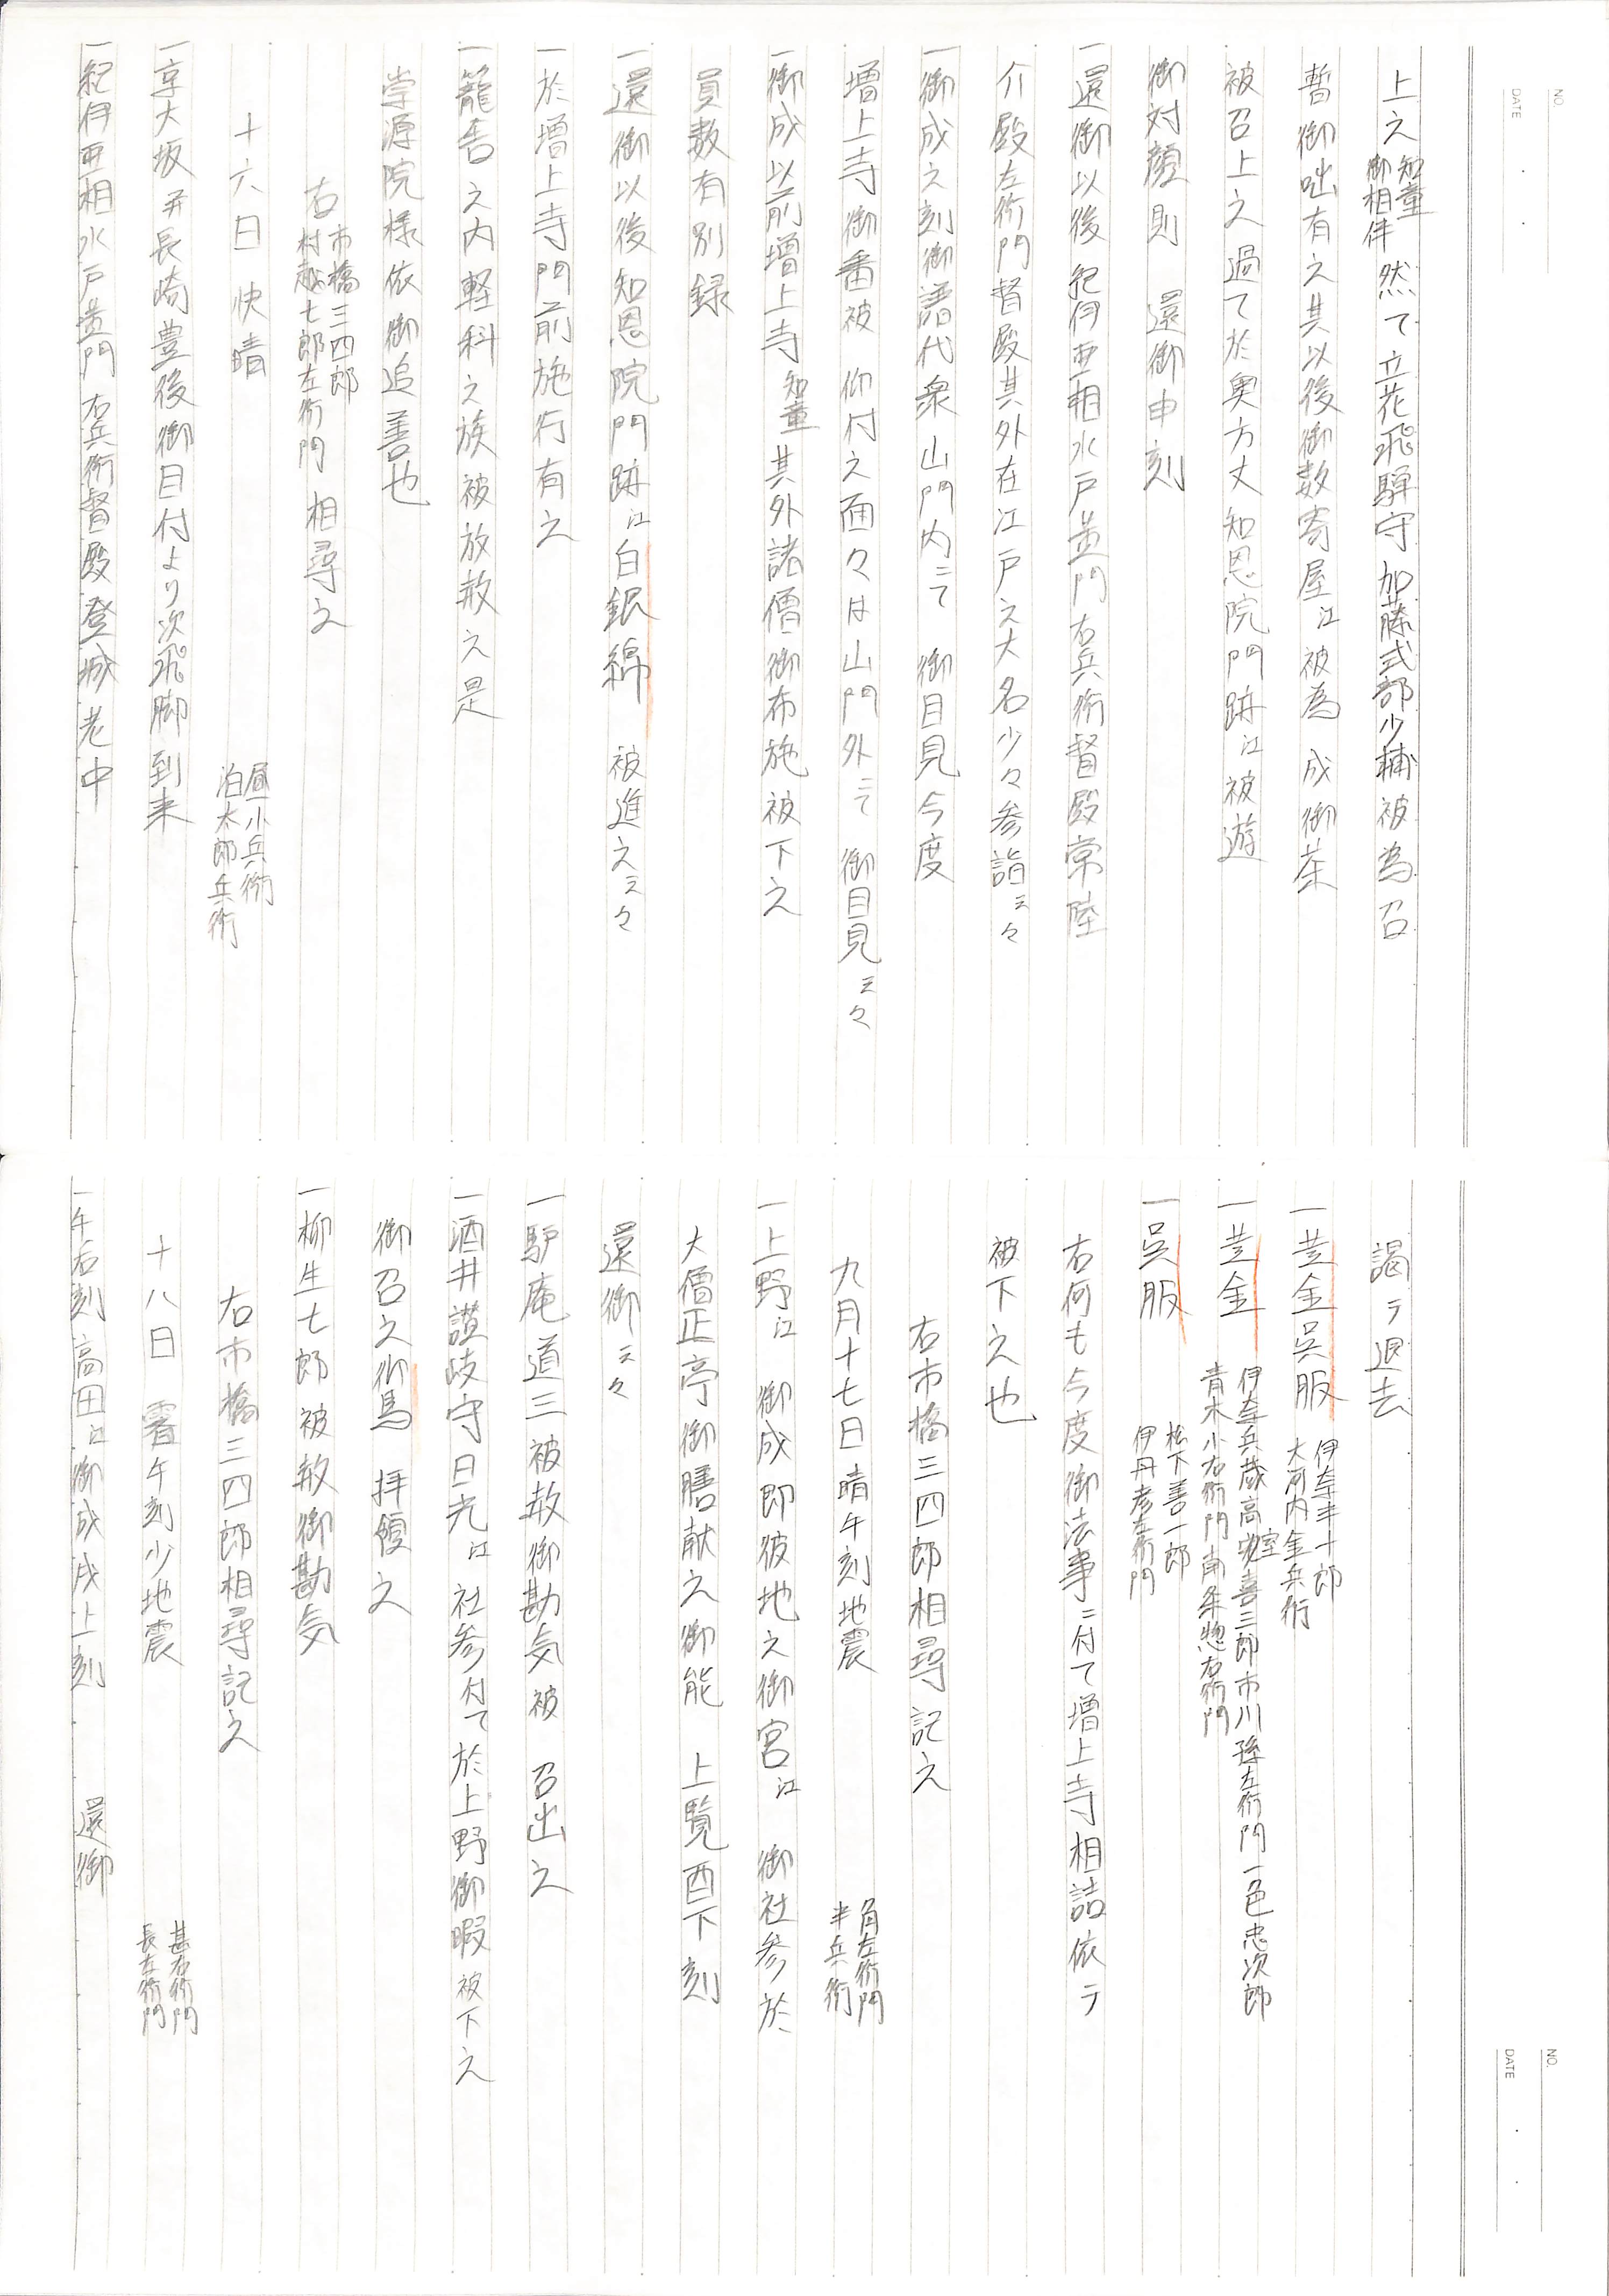 NO.
DATE
上之 知童 御相伴 然て立花飛騨守 加藤式部少輔被為召
暫御咄有之其以後御数寄屋江被為 成御茶
被召上之過て於奥方丈知恩院門跡江被遊
御対顔則 還御申刻
一還御以後紀伊亜相水戸黄門右兵衛督殿常陸
介殿左衛門督殿其外在江戸之大名少々参詣云々
一御成之刻御譜代衆山門内ニて 御目見今度
増上寺御番被 仰付之面々は山門外ニて 御目見云々
一御成以前増上寺 知童 其外諸僧御布施被下之
員数有別録
一還御以後知恩院門跡江白銀綿 被進之云々
一於増上寺門前施行有之
一籠舎之内軽科之族被放赦之是
崇源院様依御追善也
右 市橋三四郎 村越七郎左衛門 相尋之
十六日 快晴 昼小兵衛 泊太郎兵衛
一京大坂并長崎豊後御目付より次飛脚到来
一紀伊亜相水戸黄門 右兵衛督殿登城老中
NO.
DATE
謁テ退去
一黄金呉服 伊奈半十郎 大河内金兵衛
一黄金 伊奈兵蔵高室喜三郎市川孫左衛門一色忠次郎 青木小右衛門南条惣右衛門
一呉服 松下善一郎 伊丹彦左衛門
右何も今度御法事ニ付て増上寺相詰依テ
被下之也
右市橋三四郎相尋記之
九月十七日晴午刻地震 角左衛門 半兵衛
一上野江 御成即彼地之御宮江 御社参於
大僧正亭御膳献之御能 上覧酉下刻
還御云々
一驢庵道三被赦御勘気被 召出之
一酒井讃岐守日光江社参付て於上野御暇被下之
御召之御馬 拝領之
一柳生七郎被赦御勘気
右市橋三四郎相尋記之
十八日 霽午刻少地震 甚右衛門 長左衛門
一午右刻高田江御成戌上刻 還御